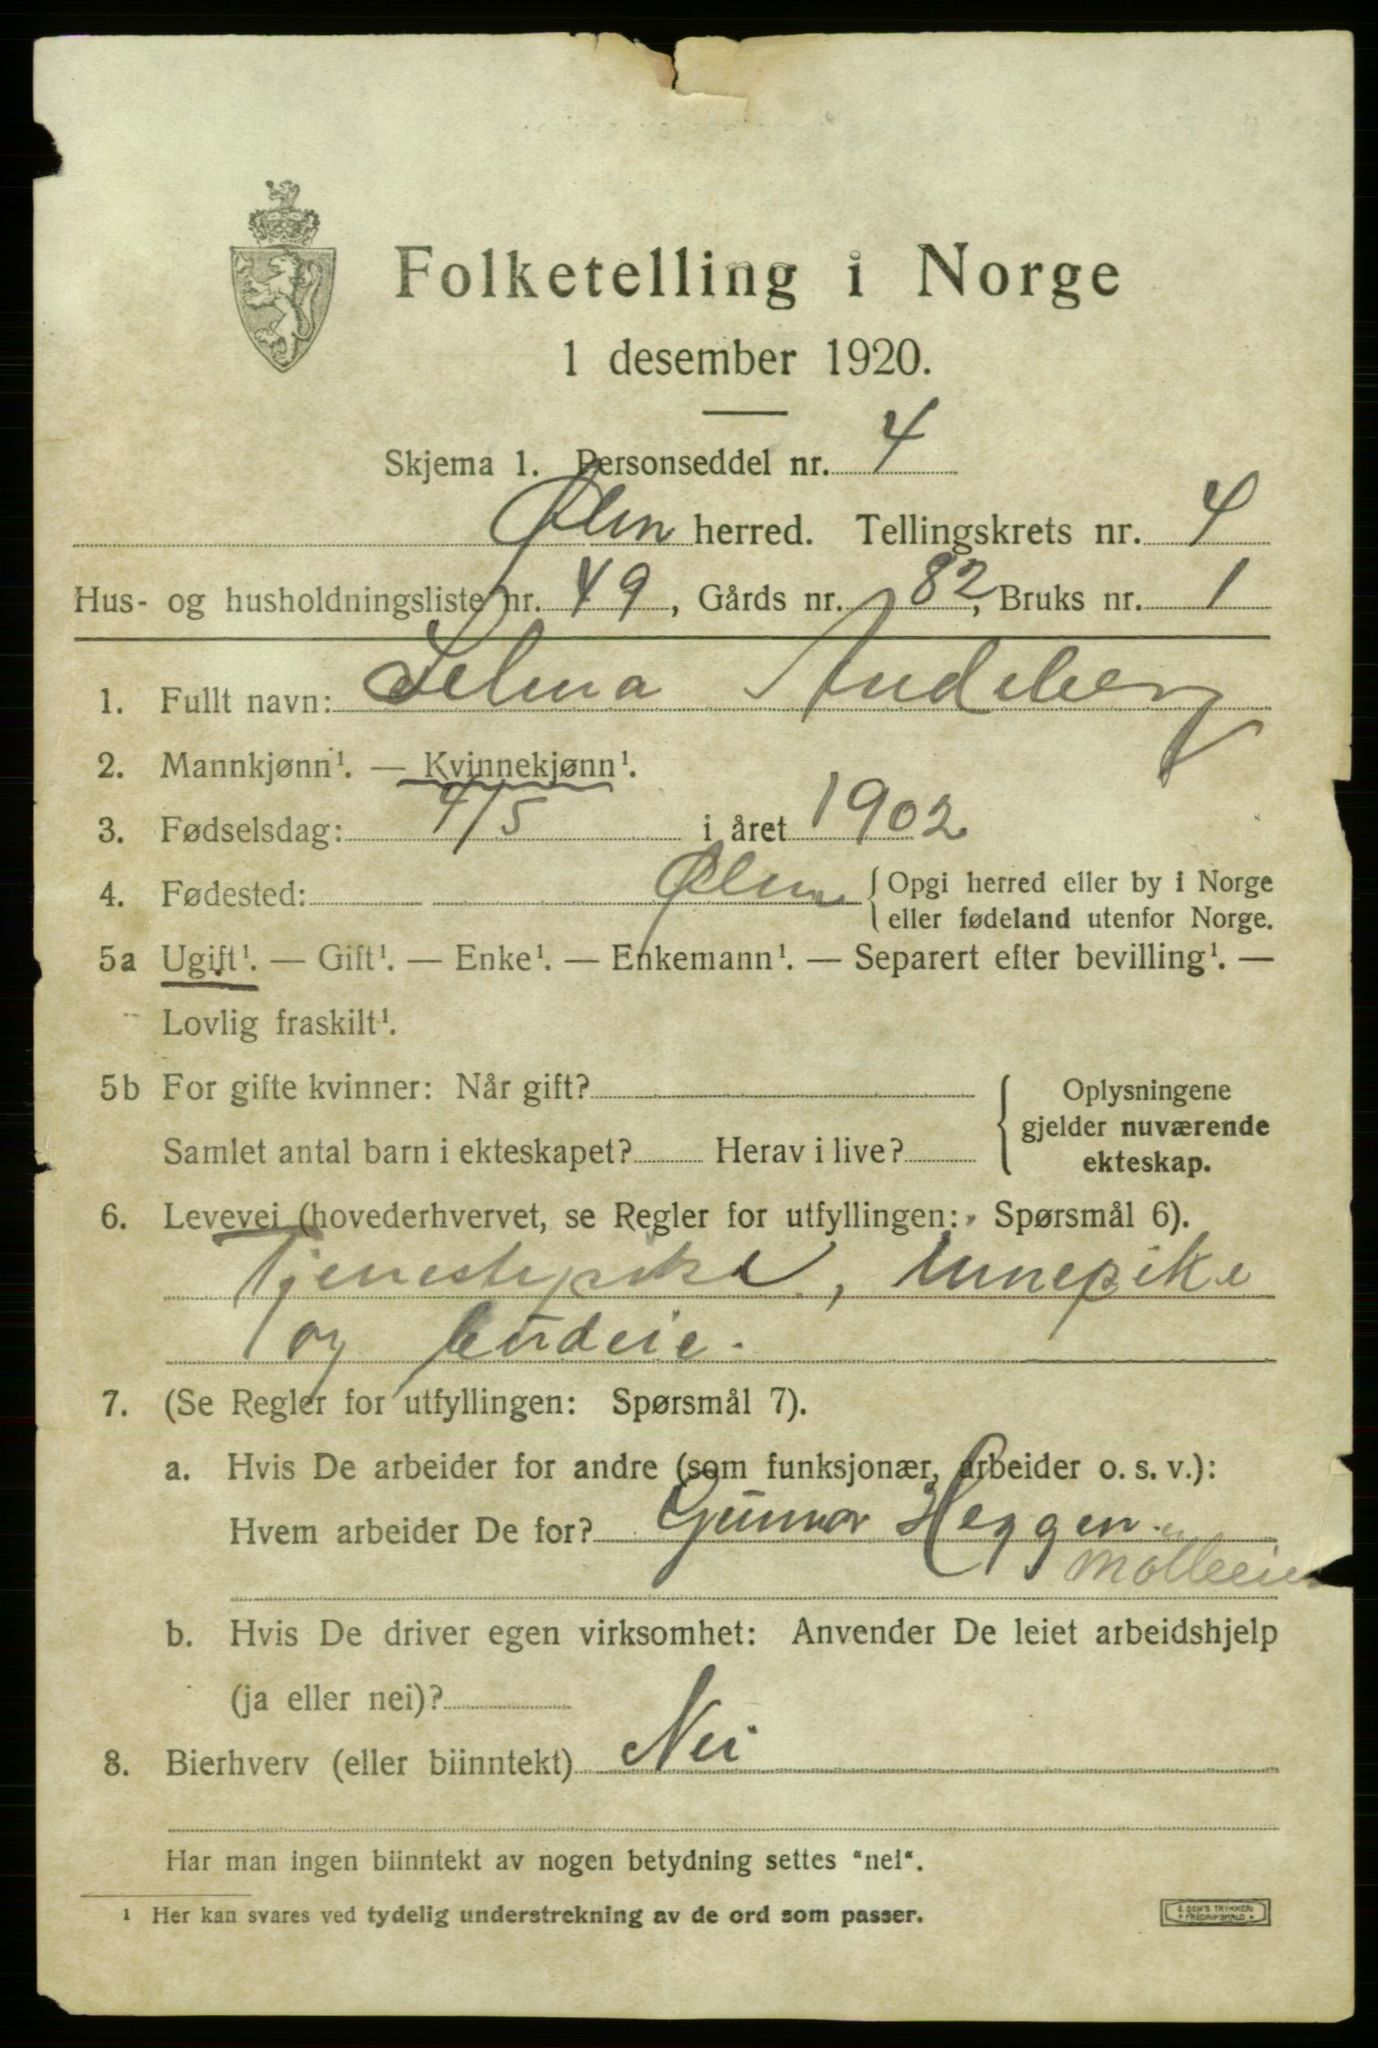 Folketelling i Norge
1 desember 1920.
Skjema 1. Personseddel nr. 4
Ølen herred. Tellingskrets nr. 4
Hus- og husholdningsliste nr. 49, Gårds nr. 82, Bruks nr. 1
1. Fullt navn: Selma Andeberg
2. Mannkjønn¹. — Kvinnekjønn¹.
3. Fødselsdag: 4/5 i året 1902
4. Fødested: Ølen {Opgi herred eller by i Norge
eller fødeland utenfor Norge.
5a Ugift¹. — Gift¹. — Enke¹. — Enkemann¹. — Separert efter bevilling¹. —
Lovlig fraskilt¹.
5b For gifte kvinner: Når gift? Oplysningene
gjelder nuværende
Samlet antal barn i ekteskapet? Herav i live? ekteskap.
6. Levevei (hovederhvervet, se Regler for utfyllingen: Spørsmål 6).
Tjenestepike, innepike
og budeie.
7. (Se Regler for utfyllingen: Spørsmål 7).
a. Hvis De arbeider for andre (som funksjonær, arbeider o. s. v.):
Hvem arbeider De for? Gunnar Heggen
Mølleeier
b. Hvis De driver egen virksomhet: Anvender De leiet arbeidshjelp
(ja eller nei)?
8. Bierhverv (eller biinntekt) Nei
Har man ingen biinntekt av nogen betydning settes "nei".
¹ Her kan svares ved tydelig understrekning av de ord som passer.